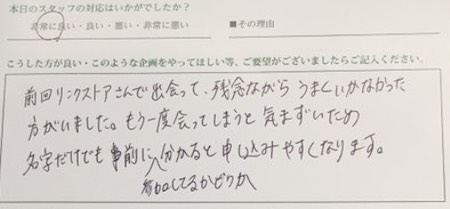 本日のスタッフの対応はいかがでしたか？
非常に良い・良い・悪い・非常に悪い ■その理由
こうした方が良い・このような企画をやってほしい等、ご要望がございましたらご記入ください。
前回リンクストアさんで出会って、残念ながらうまくいかなかった
方がいました。もう一度会ってしまうと気まずいため
名字だけでも事前に分かると申し込みやすくなります。
参加してるかどうか